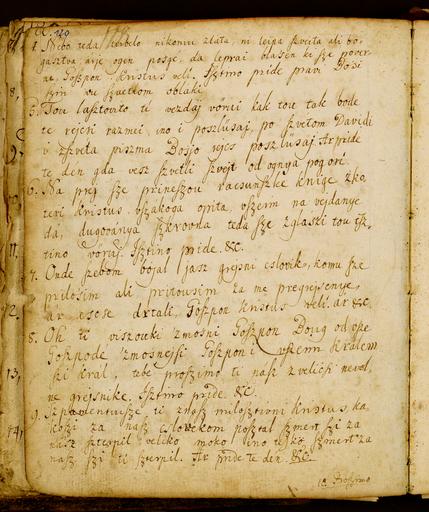 4. Nebo teda trbelo nikomu zlata, ni leipa szveita ali bo-
gasztva
ne, Goszpon Kristus veli. Isztino pride pravi Bosi
szin vu szvetlom oblaki.
5. Tou lasztovito te vezdaj vorui kak tou tak bode
te rejcsi razmei, ino i poszlüsaj, po szvetom Davidi
i szveta piszma Bosjo rejcs poszlüsaj Ar pride
te den gda vesz szveitli szvejt od ognya pogori.
6. Na prej sze prineszou racsunszke knige zko-
teri Kristus, vszakoga opita, vszem na vejdanye
da, dugovanya szkrovna teda sze zglaski tou isz-
tino vörui. Isztino pride. &c.
7. Onde sze bom bojal jasz gresni cslovik, komu sze
prilosim ali pritouisim za me pregresenye,
ar csose drzali, Goszpon Kristus veli. ar &c
8. Oh ti viszouki zmosni Goszpon Boug od vsze
Goszpode zmosnejsi Goszpon i vszem Kralem
szi kral, tebe proszimo ti nasz zvelicsi nevol-
ne gresnike. Isztino pride. &c.
9. ti znas milosztivni Kristus, ka
kosi za nasz cslovekom posztal szmert szi za
nasz szterpil veliko moko ino tesko szmert za
nasz szi ti szterpil. Ar pride te den. &c.
10 Proszimo